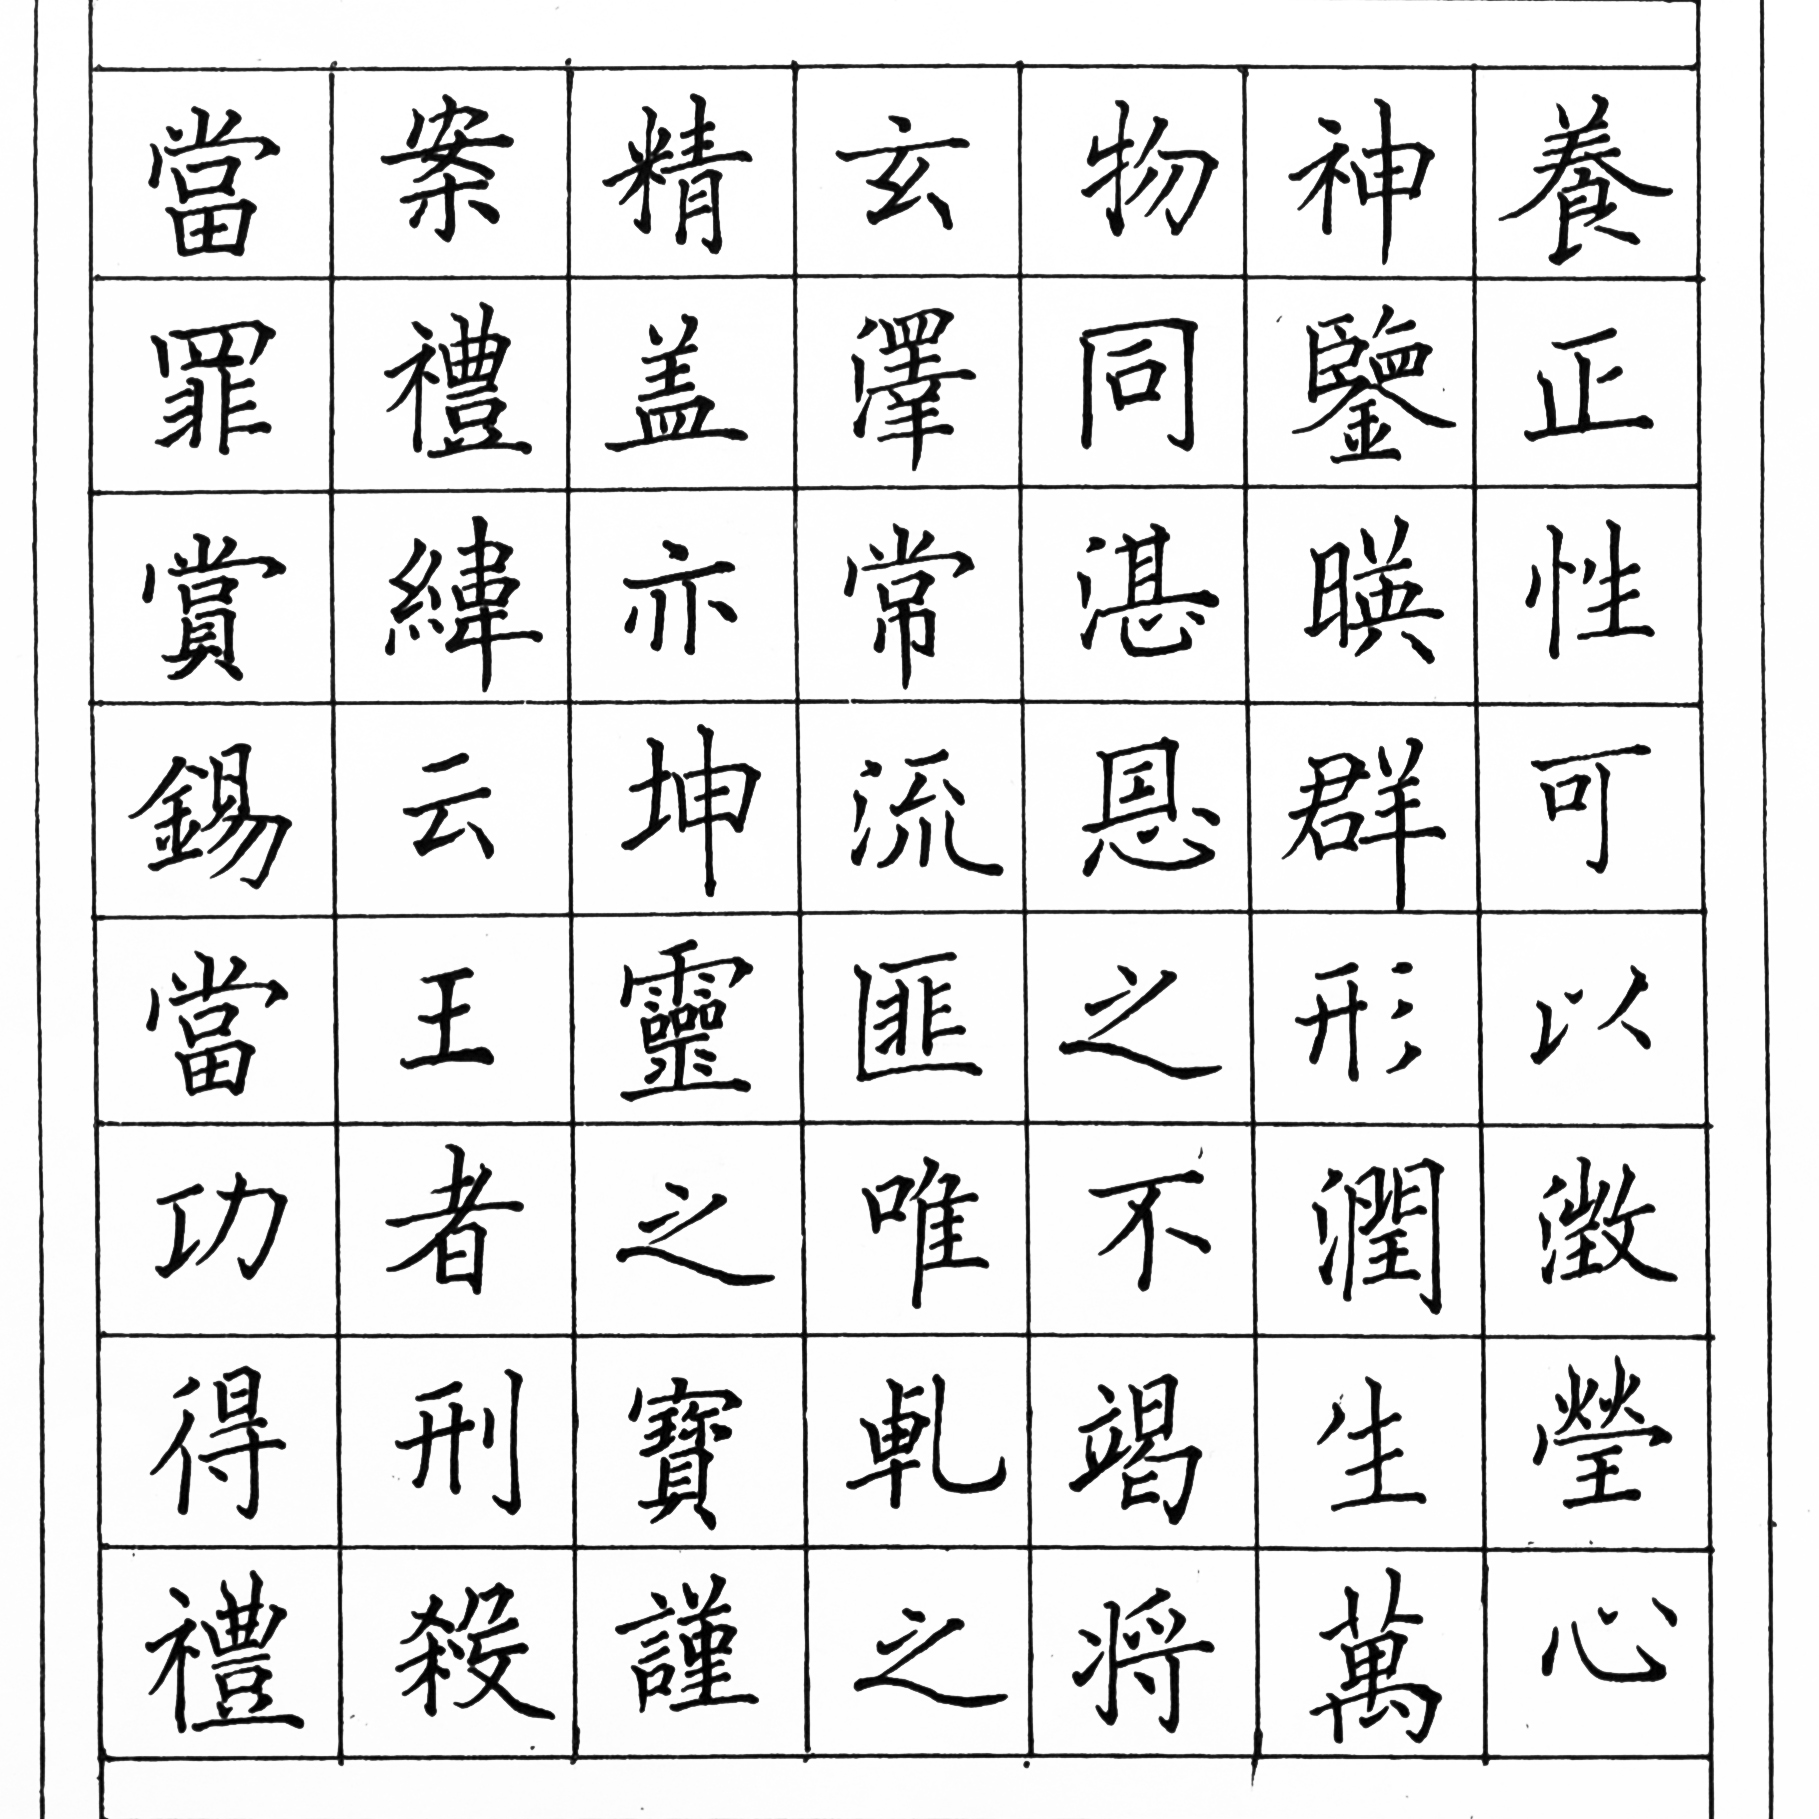 養正性可以澂瑩心
神鑒暎群形潤生萬
物同湛恩之不竭将
玄澤常流匪唯乹之
精盖亦坤靈之寶謹
案禮緯云王者刑殺
當罪賞錫當功得禮